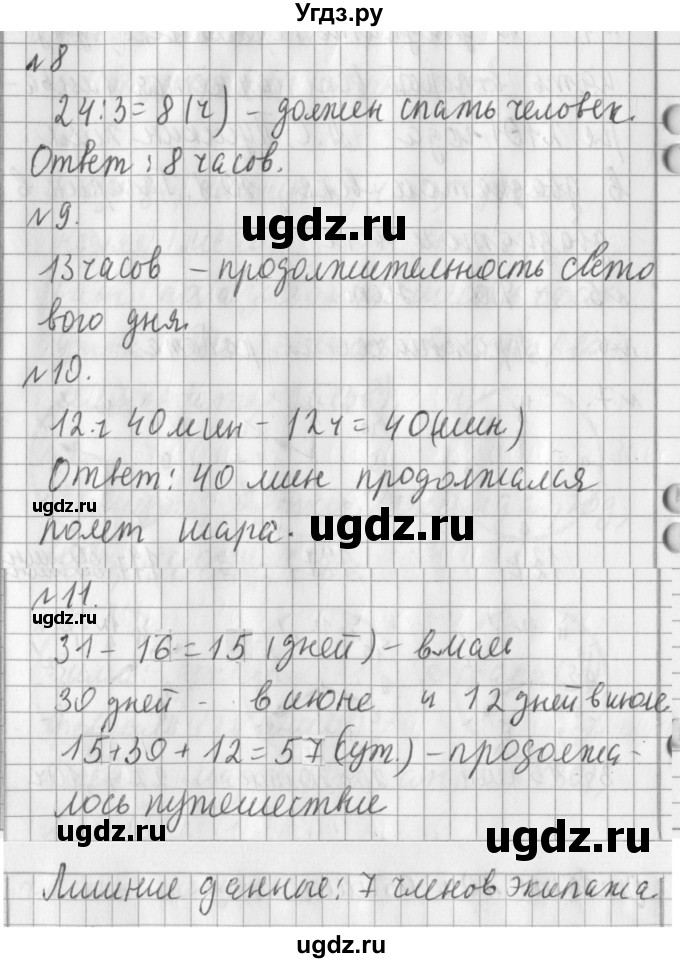 Угдз.ру
№8
24:3=8(ч) - должен спать человек.
Ответ: 8 часов.
№9.
ugdz.ru
13 часов - продолжительность свето
вого дня.
№10.
12 ч 40 мин - 12 ч = 40 (мин)
Ответ: 40 мин продолжался
ugdz.ru
полет шара.
ugdz.ru
№11.
ugdz.ru
31 - 16 = 15 (дней) - в мае
30 дней - в июне и 12 дней в июле.
15+30+12=57 (сут.) - продолжа-
лось путешествие
ugdz.ru
ugdz.ru
Лишние данные: 7 членов экипажа.
ugdz.ru